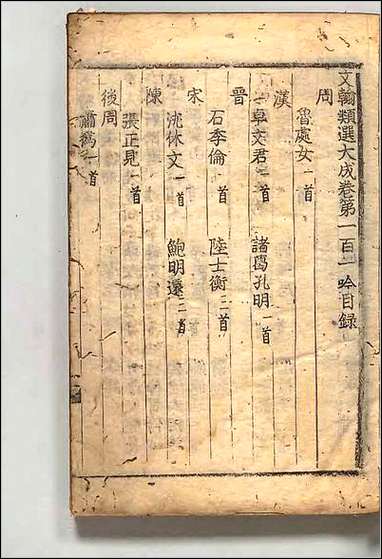 文翰類選大成卷第一百一 吟目録
周
魯處女一首
漢
卓文君一首 諸葛孔明一首
晉
石季倫一首 陸士衡二首
宋
沈休文一首 鮑明遠二首
陳
張正見一首
後周
蕭撝一首